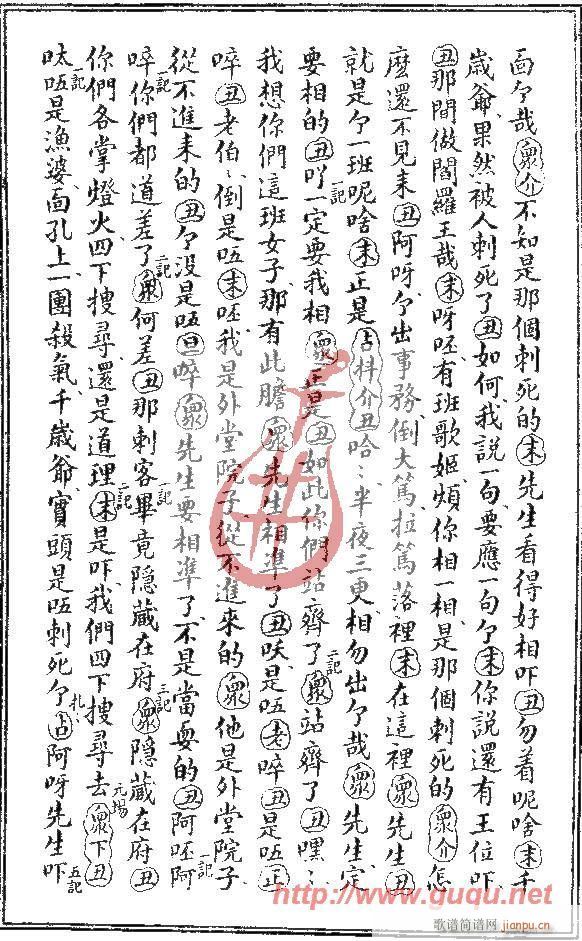 面勺哉(衆介)不知是那個刺死的(末)先生看得好相吓(丑)勿着呢啥(末)千
歲爺果然被人刺死了(丑)如何我說一句要應一句勺(末)你說還有王位吓
(丑)那間做閻羅王哉(末)呀呸有班歌姬煩你相一相是那個刺死的(衆介)怎
麽還不見末(丑)阿呀勺出事務倒大篤拉篤落裡(末)在這裡(衆)先生(丑)
就是勺一班呢啥(末)正是(占抖介丑)哈〻半夜三更相勿出勺哉(衆)先生定
要相的(丑)吖一定要我相(衆)正是(丑)如此你們站齊了(衆)站齊了(丑)嘿〻
我想你們這班女子那有此膽(衆)先生相準了(丑)呔是唔(老)啐(丑)是唔(正)
啐(丑)老伯〻倒是唔(末)呸我是外堂院子從不進來的(衆)他是外堂院子
從不進來的(丑)勺没是唔(旦)啐(衆)先生要相準了不是當耍的(丑)阿呸阿
啐你們都道差了(衆)何差(丑)那刺客畢竟隱藏在府(衆)隱藏在府(丑)
你們各掌燈火四下搜尋還是道理(末)是吓我們四下搜尋去(衆下丑)
呔唔是漁婆面孔上一團殺氣千歲爺實頭是唔刺死勺(占)阿呀先生吓
一記
一記
一記
一記
一記
一記
二記
三記
元場
扎〻
五記
http://www.guqu.net
歌谱简谱网
jianpu.cn